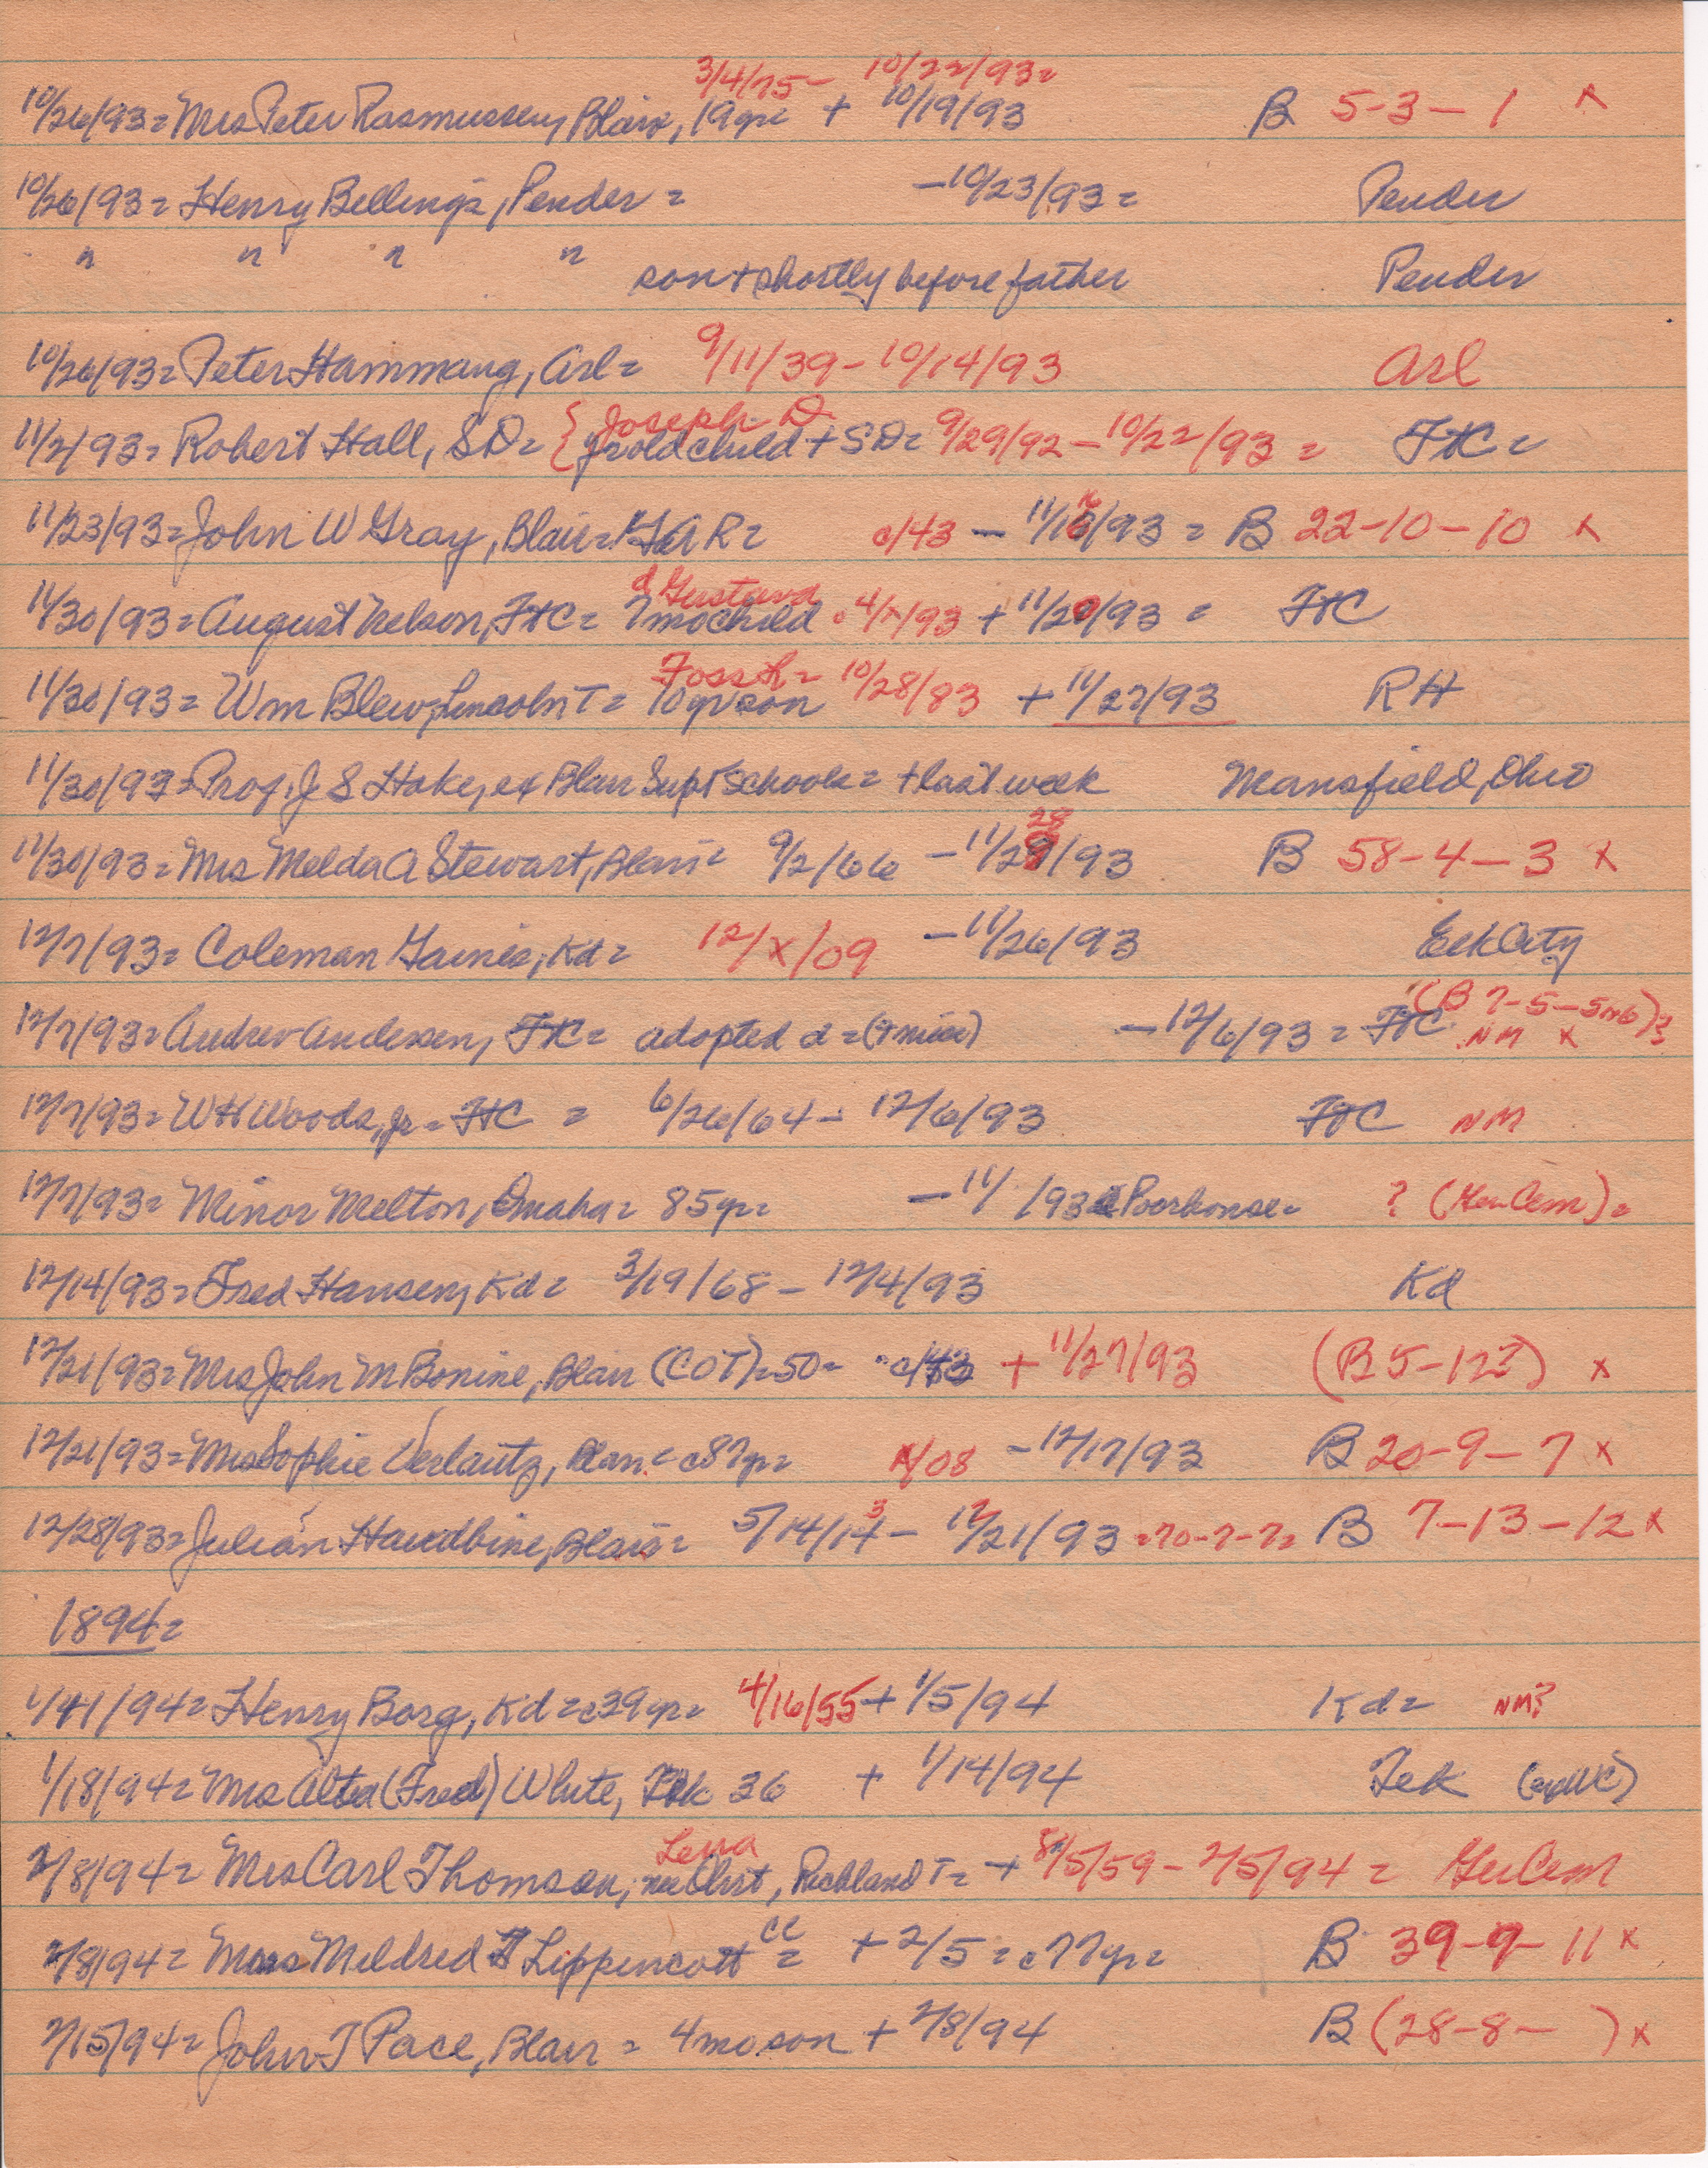 3/4/75- 10/22/93=
10/26/93= Mrs Peter Rasmussen, Blair, 19yr= + 10/19/93 B 5-3-1 x
10/26/93= Henry Billings, Pender = -10/23/93= Pender
" " " " son + shortly before father Pender
10/26/93= Peter Hammang, Arl= 9/11/39-10/14/93 Arl
Joseph D
11/2/93= Robert Hall, SD= { yroldchild + SD= 9/29/92-10/22/93 = FtC=
11/23/93= John W Gray, Blair= GAR= c/43 - 11/16/93 = B 22-10-10 x
d Gustava
11/30/93= August Nelson, FtC= 7mochild 4/x/93 + 11/20/93 = FtC
11/30/93= Wm Blew, LincolnT= 10yrson 10/28/83 + 11/27/93 RH
11/30/93= Prof. J S Hoke, ex Blair Supt Schools= + last week Mansfield, Ohio
28
11/30/93= Mrs Melda A Stewart, Blair= 9/2/66 -11/29/93 B 58-4-3 x
12/7/93= Coleman Gaines, Kd= 12/x/09 -11/26/93 Elk City
(B 7-5-5
12/7/93= Andrew Andersen, FtC= adopted d= -12/6/93 = FtC NM x
12/7/93= W H Woods, Jr= FtC = 6/26/64- 12/6/93 FtC NM
12/7/93= Minor Melton, Omaha= 85yr= -11/ /93 Poorhouse= ? ( Cem)=
12/14/93= Fred Hansen, Kd= 3/19/68- 12/4/93 Kd
12/21/93= Mrs John M Bonine, Blair (COT)=50= c/43 + 11/27/93 (B 5-12?) x
12/21/93= Mrs Sophie Verlautz, Blair= c87yr= x/08 -12/17/93 B 20-9-7 x
3
12/28/93= Julian Haudbine, Blair= 5/14/14- 12/21/93 =70-7-7= B 7-13-12 x
1894=
1/11/94= Henry Borg, Kd= c39yr= 4/16/55 + 1/5/94 Kd= NM?
1/18/94= Mrs Alta (Fred) White, Tek 36 + 1/14/94 Tek
Lena
2/8/94= Mrs Carl Thomsen, nee Ohrt, Richland T= + 8/5/59-2/5/94 = Cem
CC
2/8/94= Mrs Mildred Lippencott = + 2/5= c77yr= B 39-9-11 x
2/15/94= John T Pace, Blair = 4mo son + 2/8/94 B (28-8- ) x